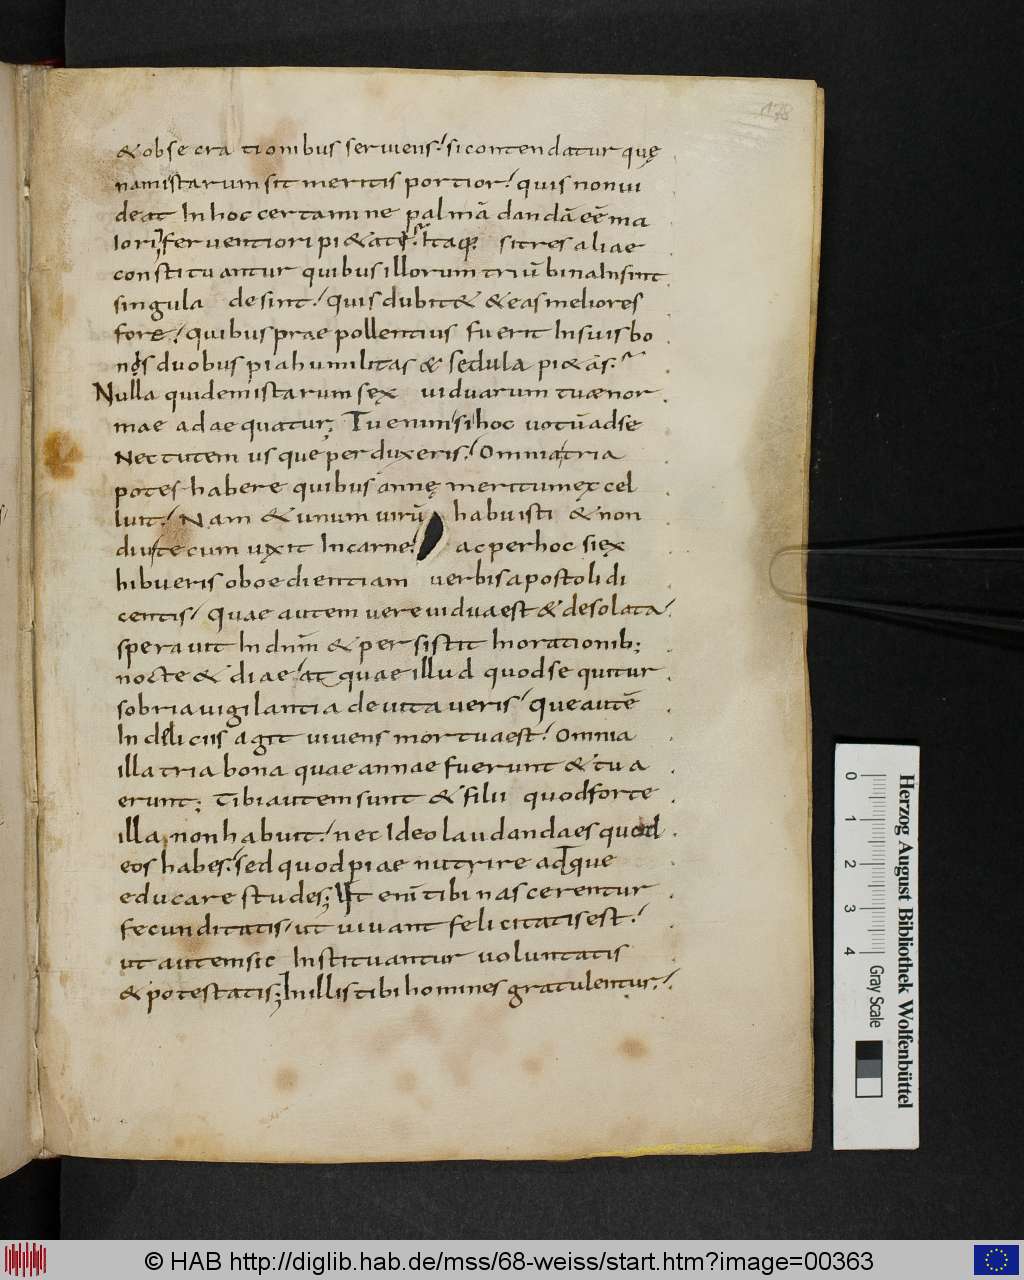 178
& obsecrationibus serviens? si contendatur quę
nam istarum sit meritis portior? quis non vi
deat In hoc certamine palmā dandā eē ma
iori, ferventiori pi&ate? Itaq; si tres aliae
constituantur quibus illorum triū bina Insint
singula desint? quis dubit& & eas meliores
fore? quibus prae pollentius fuerit In suis bo
nis duobus pia humilitas & sedula pi&ās?
Nulla quidem istarum sex viduarum tuae nor
mae adaequatur; Tu enim si hoc votū ad se
Nectutem usque perduxeris? Omnia tria
potes habere quibus annę meritum excel
luit? Nam & unum virū habuisti & non
diu tecum vixit In carne? ac per hoc si ex
hibueris oboedientiam verbis apostoli di
centis/ Quae autem vere vidua est & desolata/
speravit In dnm̄ & persistit In orationib;
nocte & diae/ at quae illud quod sequitur
sobria vigilantia devitaveris/ Que autē
In deliciis agit vivens mortua est? Omnia
illa tria bona quae annae fuerunt & tua
erunt; Tibi autem sunt & filii quod forte
illa non habuit? nec Ideo laudanda es quod
eos habes? sed quod piae nutrire adque
educare studes; Ut enī tibi nascerentur
fecunditatis/ ut vivant felicitatis est?
ut autem sic Instituantur voluntatis
& potestatis; In illis tibi homines gratulentur?
0 1 2 3 4
Herzog August Bibliothek Wolfenbüttel
Gray Scale
© HAB http://diglib.hab.de/mss/68-weiss/start.htm?image=00363